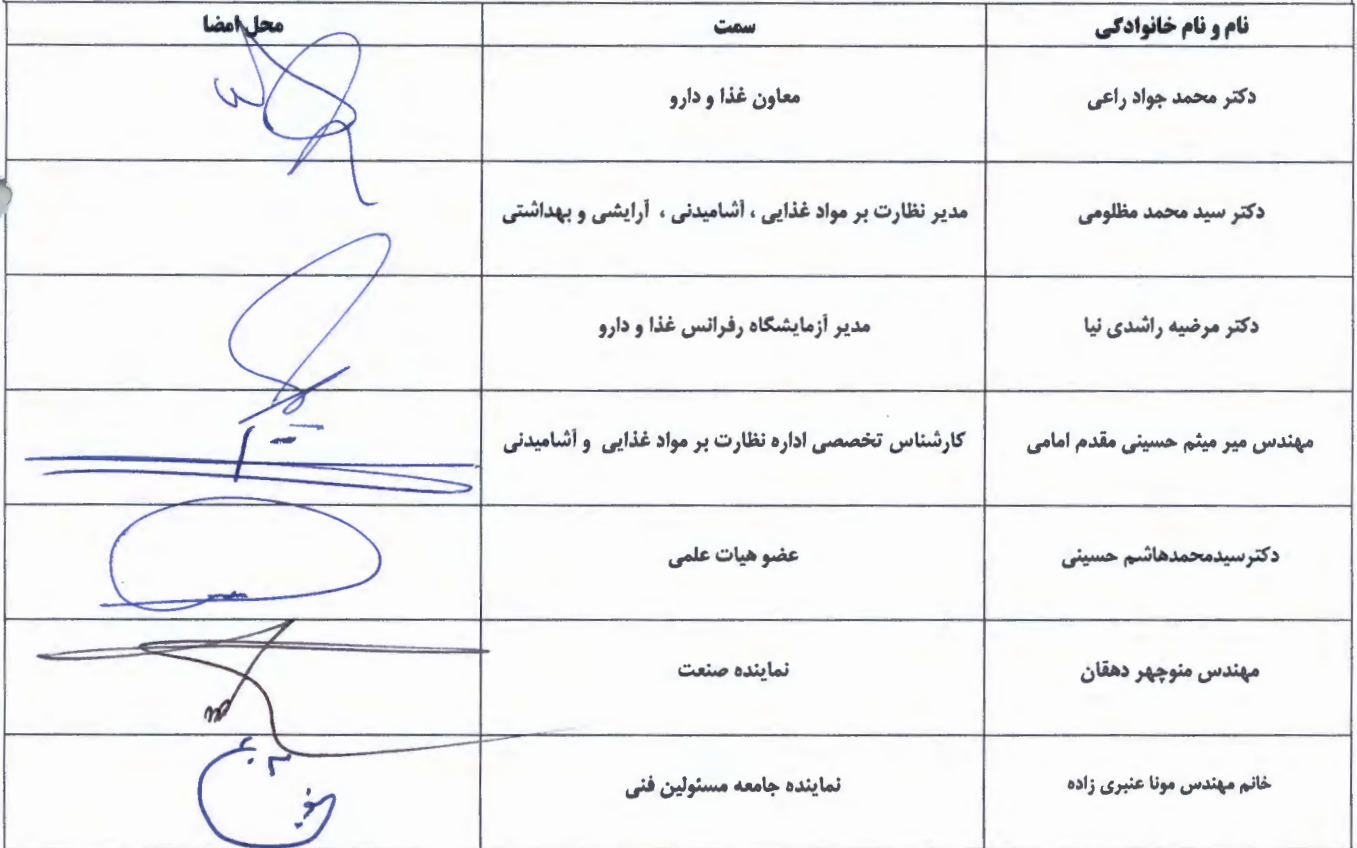 نام و نام خانوادگی سمت محل امضا
دکتر محمد جواد راعی معاون غذا و دارو
دکتر سید محمد مظلومی مدیر نظارت بر مواد غذایی ، آشامیدنی ، آرایشی و بهداشتی
دکتر مرضیه راشدی نیا مدیر آزمایشگاه رفرانس غذا و دارو
مهندس میر میثم حسینی مقدم امامی کارشناس تخصصی اداره نظارت بر مواد غذایی و آشامیدنی
دکترسیدمحمدهاشم حسینی عضو هیات علمی
مهندس منوچهر دهقان نماینده صنعت
خانم مهندس مونا عنبری زاده نماینده جامعه مسئولین فنی